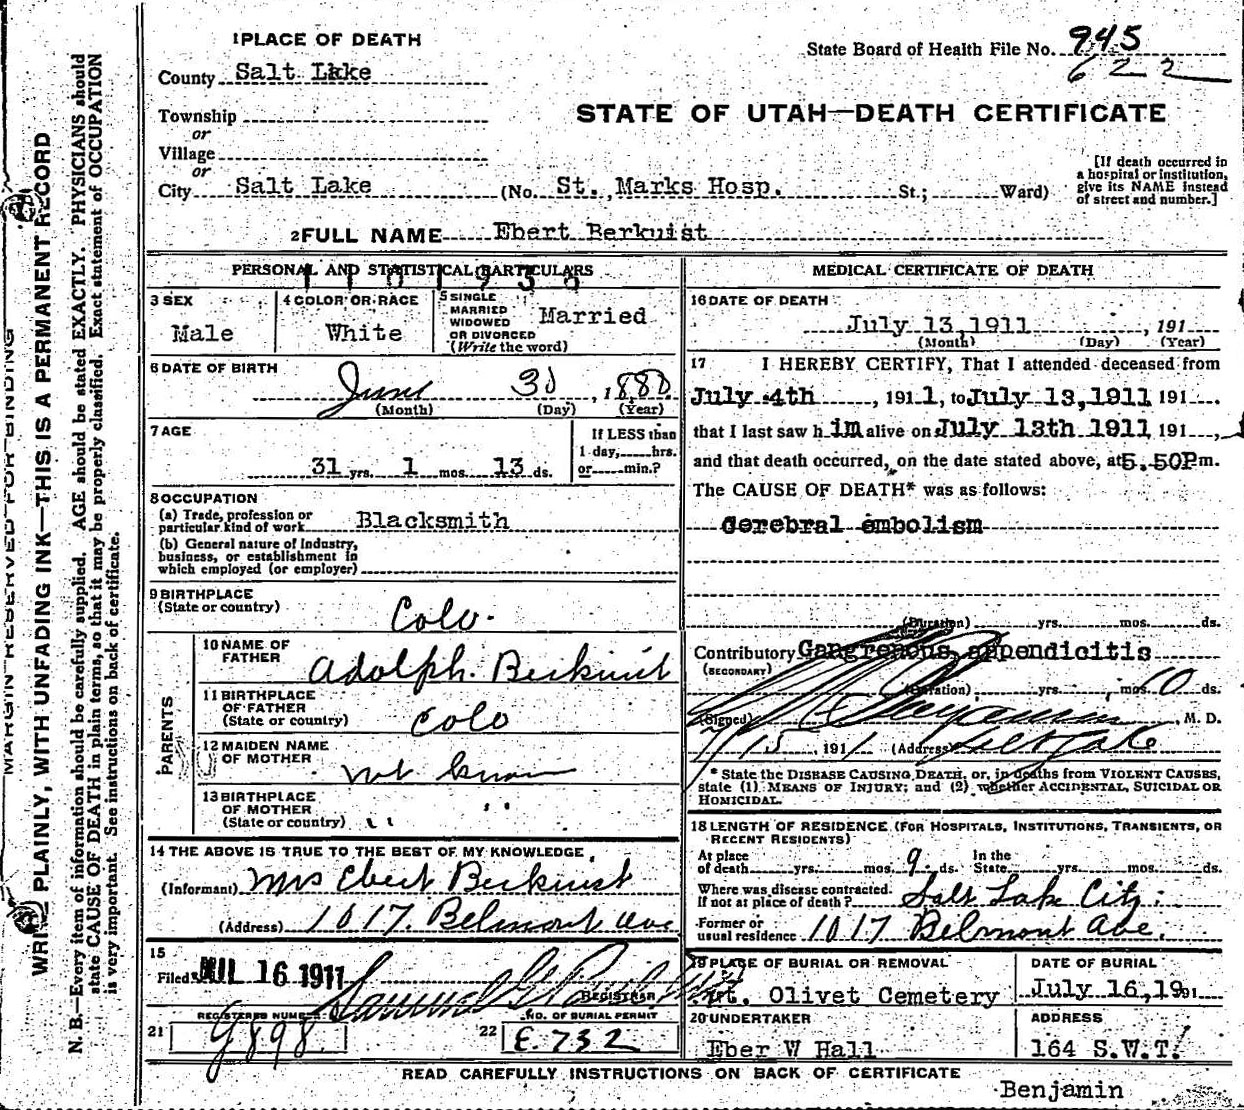 1 PLACE OF DEATH
State Board of Health File No. 945
622
County Salt Lake
STATE OF UTAH—DEATH CERTIFICATE
Township
or
Village
or
City Salt Lake (No. St. Marks Hosp. St.; Ward)
[If death occurred in
a hospital or institution,
give its NAME instead
of street and number.]
2 FULL NAME Ebert Berkuist
PERSONAL AND STATISTICAL PARTICULARS
3 SEX
Male
4 COLOR OR RACE
White
5 SINGLE
MARRIED
WIDOWED
OR DIVORCED
(Write the word)
Married
6 DATE OF BIRTH
June 30, 1880
(Month) (Day) (Year)
7 AGE
31 yrs. 1 mos. 13 ds.
If LESS than
1 day, hrs.
or min.?
8 OCCUPATION
(a) Trade, profession or
particular kind of work Blacksmith
(b) General nature of Industry,
business, or establishment in
which employed (or employer)
9 BIRTHPLACE
(State or country)
Colo.
PARENTS
10 NAME OF
FATHER
Adolph. Berkuist
11 BIRTHPLACE
OF FATHER
(State or country)
Colo
12 MAIDEN NAME
OF MOTHER
not known
13 BIRTHPLACE
OF MOTHER
(State or country) " "
14 THE ABOVE IS TRUE TO THE BEST OF MY KNOWLEDGE
(Informant) Mrs Ebert Berkuist
(Address) 1017. Belmont ave
15
Filed JUL 16 1911
REGISTRAR
REGISTERED NUMBER
21 9898.
NO. OF BURIAL PERMIT
22 E.732
MEDICAL CERTIFICATE OF DEATH
16 DATE OF DEATH
July 13, 1911, 191
(Month) (Day) (Year)
17 I HEREBY CERTIFY, That I attended deceased from
July 4th, 1911, to July 13, 1911 191
that I last saw him alive on July 13th 1911 191,
and that death occurred, on the date stated above, at 5.50P m.
The CAUSE OF DEATH* was as follows:
Cerebral embolism
(Duration) yrs. mos. ds.
Contributory Gangrenous appendicitis
(SECONDARY)
(Duration) yrs. mos. 10 ds.
(Signed) Benjamin, M. D.
7/15, 1911 (Address) Salt Lake
* State the DISEASE CAUSING DEATH, or, in deaths from VIOLENT CAUSES,
state (1) MEANS OF INJURY; and (2) whether ACCIDENTAL, SUICIDAL OR
HOMICIDAL.
18 LENGTH OF RESIDENCE (FOR HOSPITALS, INSTITUTIONS, TRANSIENTS, OR
RECENT RESIDENTS)
At place
of death yrs. mos. 9 ds.
In the
State yrs. mos. ds.
Where was disease contracted
If not at place of death? Salt Lake City
Former or
usual residence 1017 Belmont Ave.
19 PLACE OF BURIAL OR REMOVAL
Mt. Olivet Cemetery
DATE OF BURIAL
July 16, 19 191
20 UNDERTAKER
Eber W Hall
ADDRESS
164 S.W.T.
READ CAREFULLY INSTRUCTIONS ON BACK OF CERTIFICATE
Benjamin
MARGIN RESERVED FOR BINDING
WRITE PLAINLY, WITH UNFADING INK—THIS IS A PERMANENT RECORD
N. B.—Every item of information should be carefully supplied. AGE should be stated EXACTLY. PHYSICIANS should
state CAUSE OF DEATH in plain terms, so that it may be properly classified. Exact statement of OCCUPATION
is very important. See instructions on back of certificate.